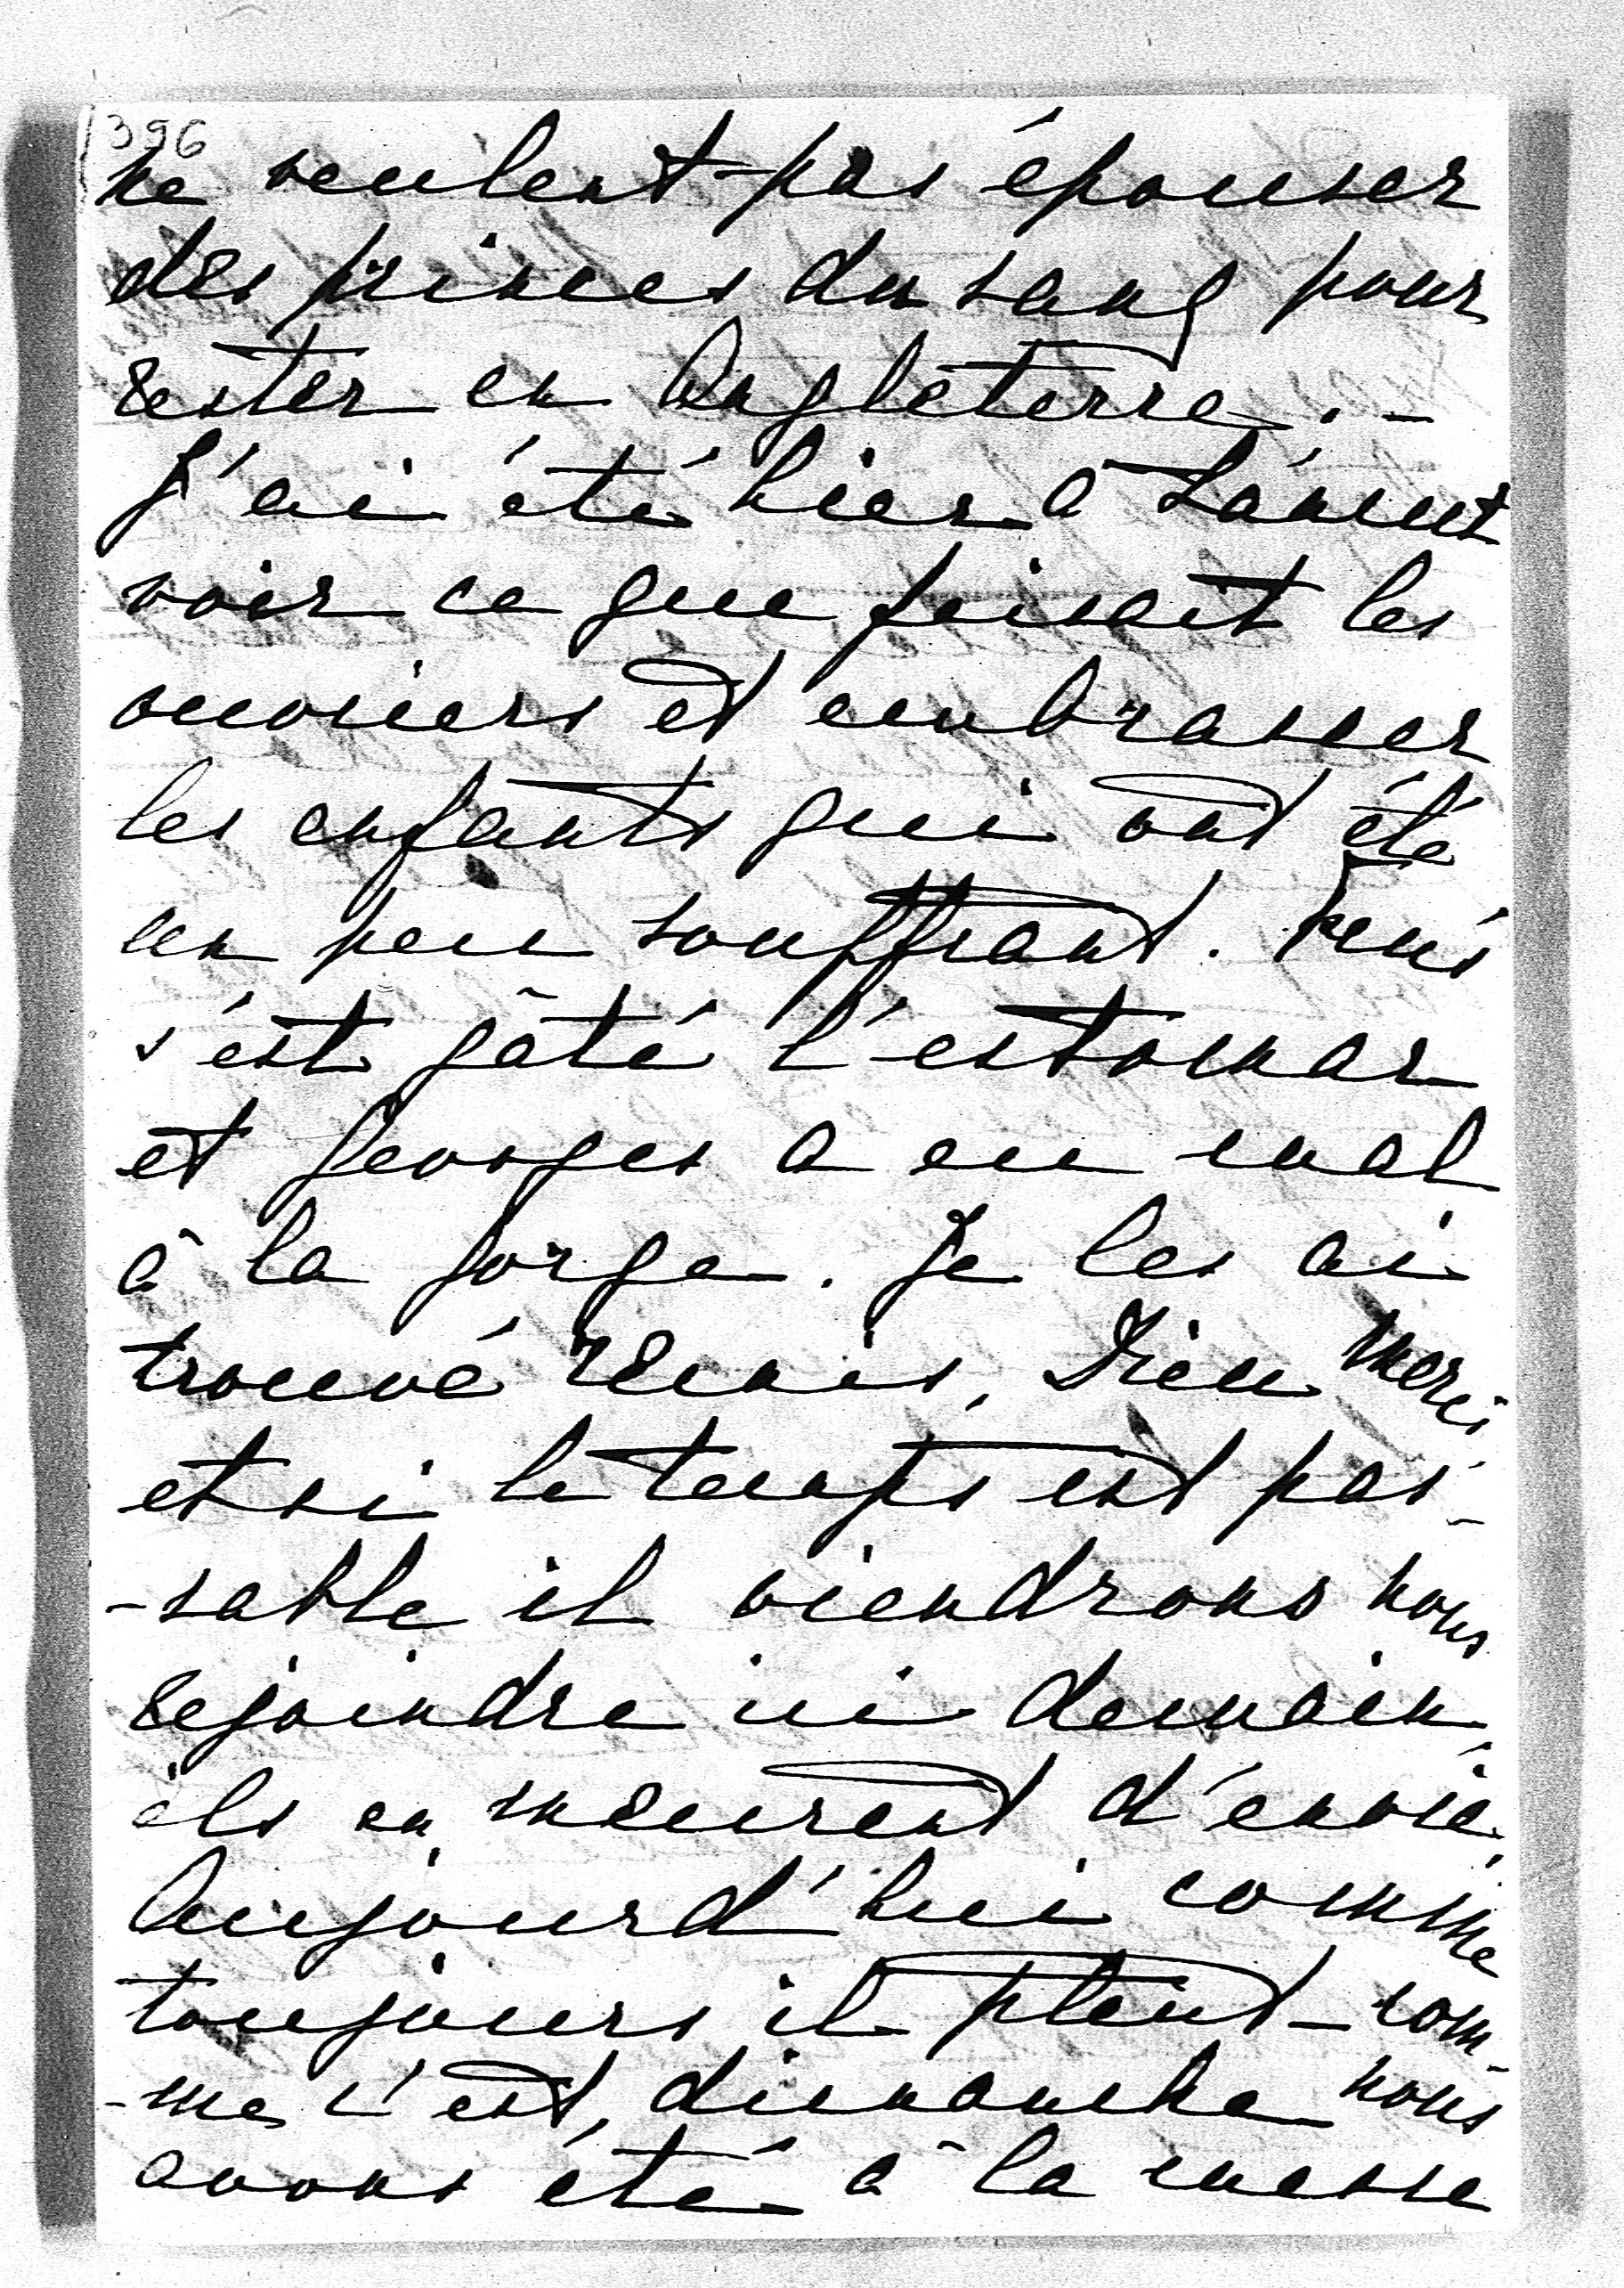 396
ne veulent pas épouser
des princes du sang pour
rester en Angleterre. —
J'ai été hier à Láncut
voir ce que faisait les
ouvriers et embrasser
les enfants qui ont été
un peu souffrant.
s'est gâté l'estomac
et Georges a eu mal
à la gorge. Je les ai
trouvé remis, Dieu merci
et si le temps est pas-
-sable il viendrons nous
rejoindre ici demain,
ils en meurent d'envie.
Aujourd'hui comme
toujours il pleut — com-
-me c'est, dimanche nous
avons été à la messe